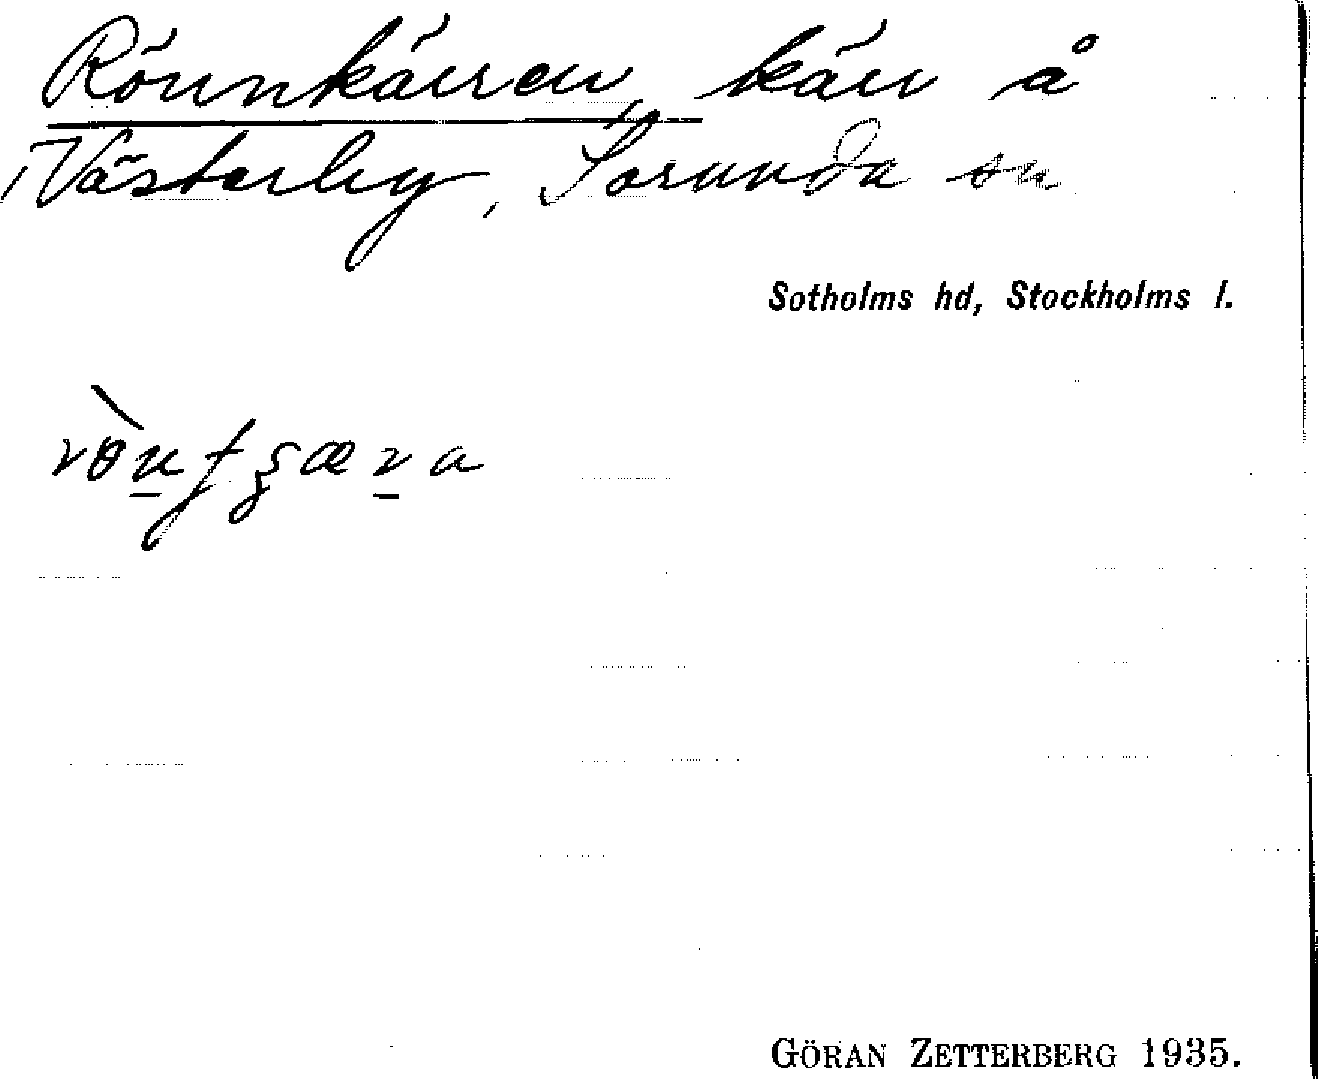 Rönnkärren, kärr å
Västerby, Sorunda sn
Sotholms hd, Stockholms l.
GÖRAN ZETTERBERG 1935.